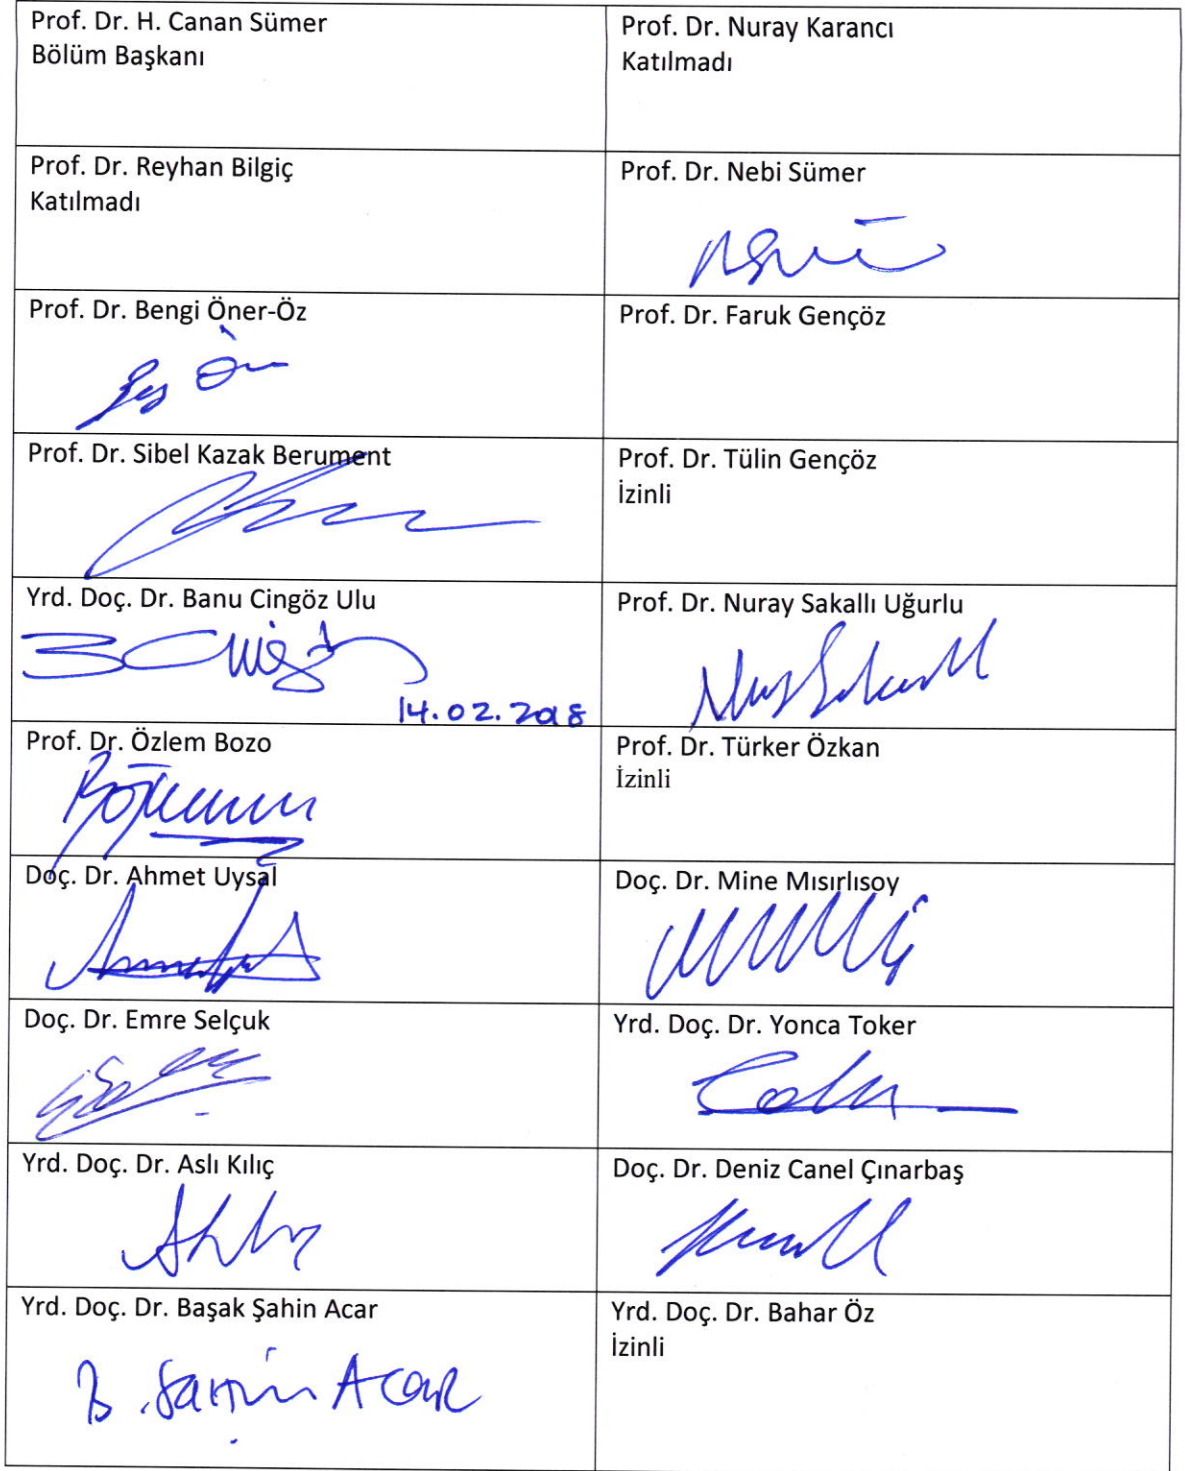 Prof. Dr. H. Canan Sümer
Bölüm Başkanı
Prof. Dr. Nuray Karancı
Katılmadı
Prof. Dr. Reyhan Bilgiç
Katılmadı
Prof. Dr. Nebi Sümer
Prof. Dr. Bengi Öner-Öz
Prof. Dr. Faruk Gençöz
Prof. Dr. Sibel Kazak Berument
Prof. Dr. Tülin Gençöz
İzinli
Yrd. Doç. Dr. Banu Cingöz Ulu
14.02.2018
Prof. Dr. Nuray Sakallı Uğurlu
Prof. Dr. Özlem Bozo
Prof. Dr. Türker Özkan
İzinli
Doç. Dr. Ahmet Uysal
Doç. Dr. Mine Mısırlısoy
Doç. Dr. Emre Selçuk
Yrd. Doç. Dr. Yonca Toker
Yrd. Doç. Dr. Aslı Kılıç
Doç. Dr. Deniz Canel Çınarbaş
Yrd. Doç. Dr. Başak Şahin Acar
B. Şahin Acar
Yrd. Doç. Dr. Bahar Öz
İzinli